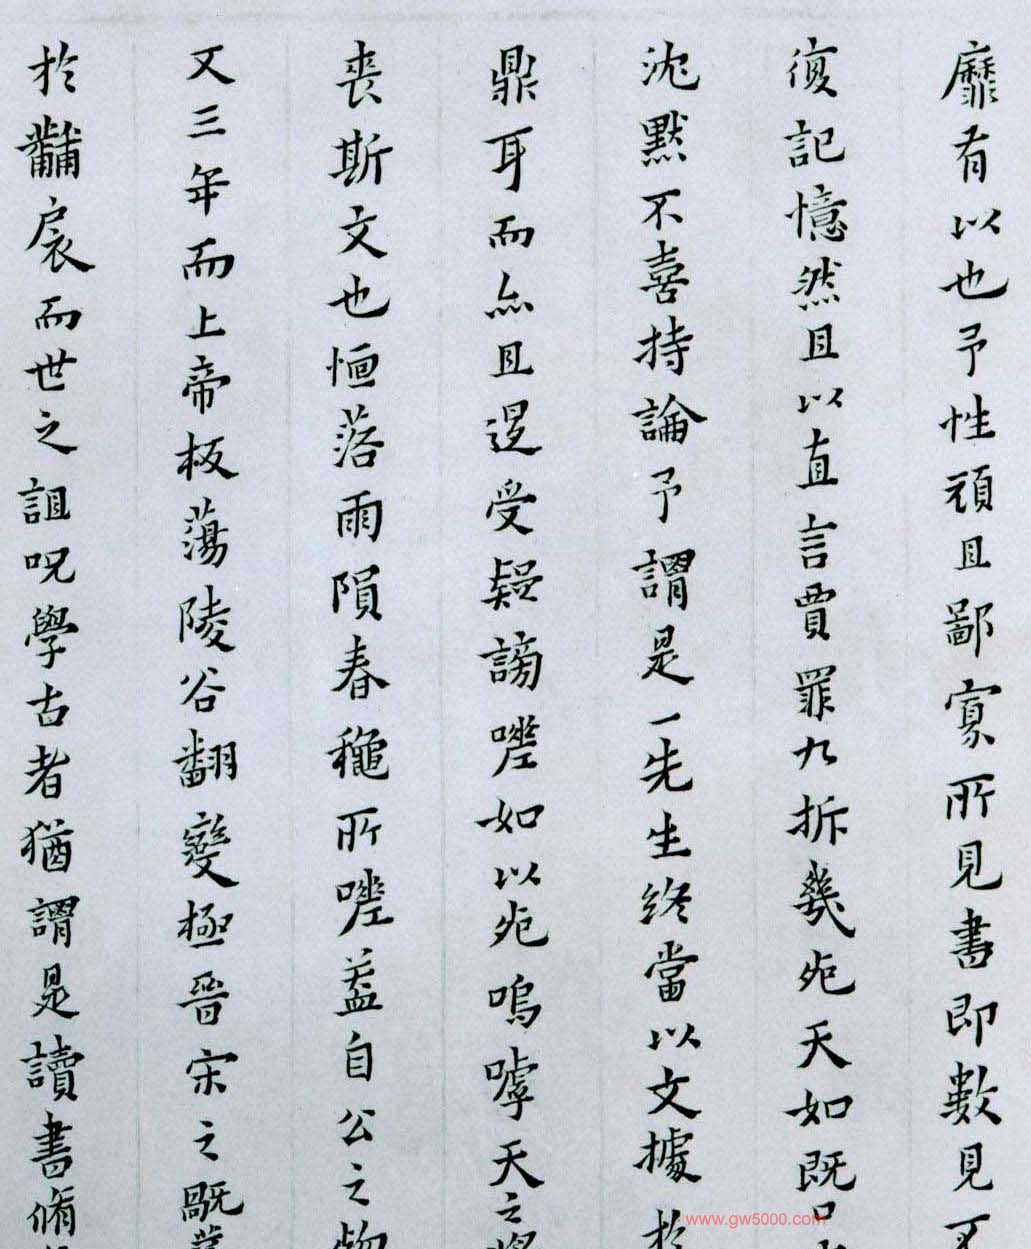 靡有以也予性頑且鄙寡所見書即數見不
復記憶然且以直言賈罪九拆幾死天如既口
沈默不喜持論予謂是一先生終當以文據於
鼎耳而亦且遝受疑謗嗟如以死嗚嘑天之將
喪斯文也恒落雨隕春龝所嗟蓋自公之物
又三年而上帝板蕩陵谷翻變極晉宋之
於黼扆而世之詛呪學古者猶謂是讀書脩
www.gw5000.com